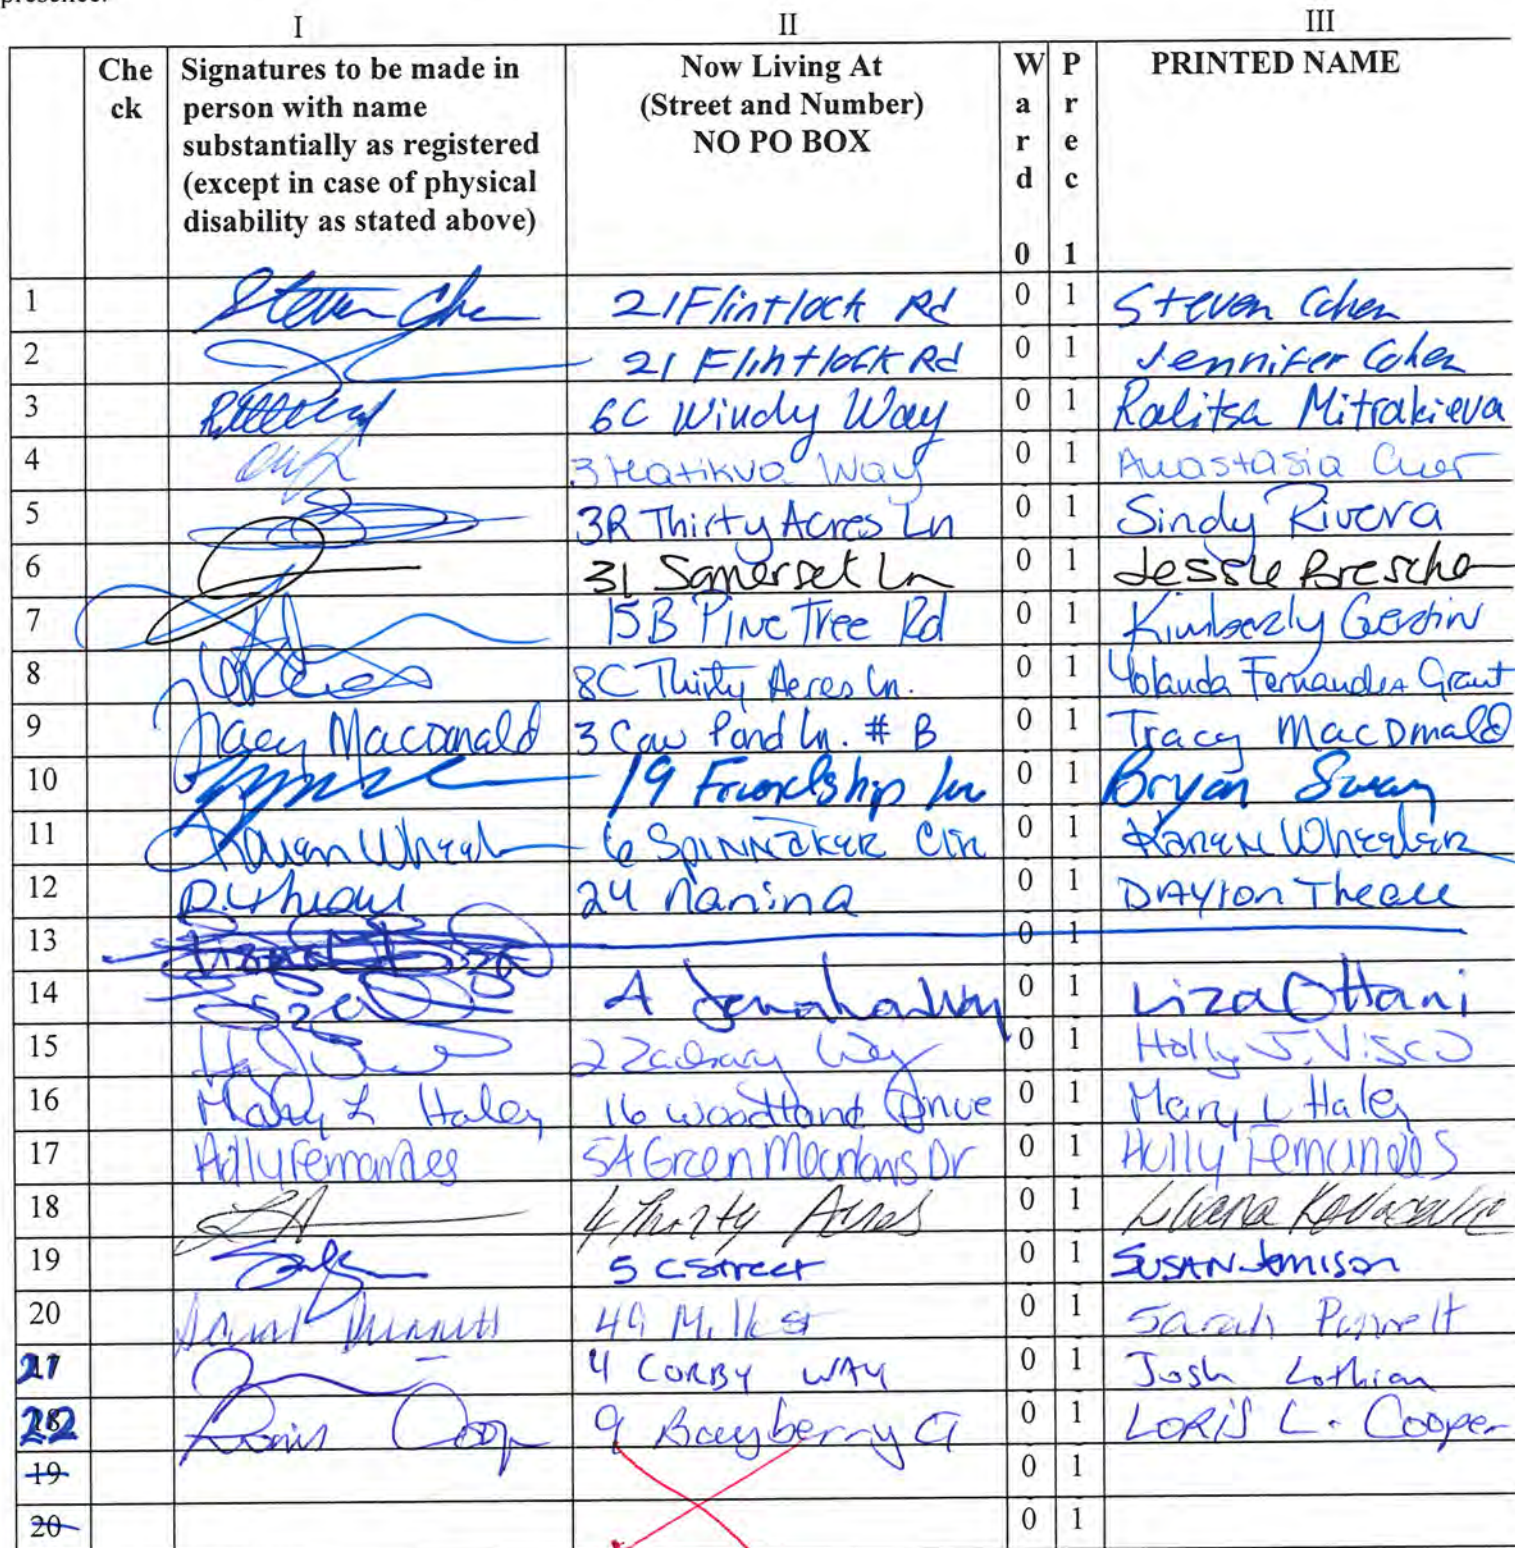 presence.
I II III
Che ck Signatures to be made in person with name substantially as registered (except in case of physical disability as stated above) Now Living At (Street and Number) NO PO BOX Ward 0 Prec 1 PRINTED NAME
1 21 Flintlock Rd 0 1 Steven Cohen
2 21 Flintlock Rd 0 1 Jennifer Cohen
3 6C Windy Way 0 1 Ralitsa Mitrakieva
4 3 Hatikva Way 0 1 Anastasia
5 3R Thirty Acres Ln 0 1 Sindy Rivera
6 31 Somerset Ln 0 1 Jessie
7 15B Pine Tree Rd 0 1 Kimberly
8 8C Thirty Acres Ln. 0 1 Yolanda Fernandes Grant
9 Tracy Macdonald 3 Cow Pond Ln. # B 0 1 Tracy MacDonald
10 19 Friendship Ln 0 1 Bryan Swain
11 Karen Wheel 6 Spinnaker Cir 0 1 Karen Wheeler
12 24 Nanina 0 1 Dayton
13 0 1
14 4 Way 0 1 Liza Ottani
15 2 Zachary Way 0 1 Holly J. Visco
16 Mary L Haley 16 Woodland Drive 0 1 Mary L Haley
17 Holly Fernandes 5A Green Meadows Dr 0 1 Holly Fernandes
18 4 Thirty Acres 0 1
19 5 C Street 0 1 Susan Jamison
20 49 Milk St 0 1 Sarah
21 4 Corby Way 0 1 Josh Lothian
22 Loris Coop 9 Bayberry Ct 0 1 Loris L. Cooper
19 0 1
20 0 1